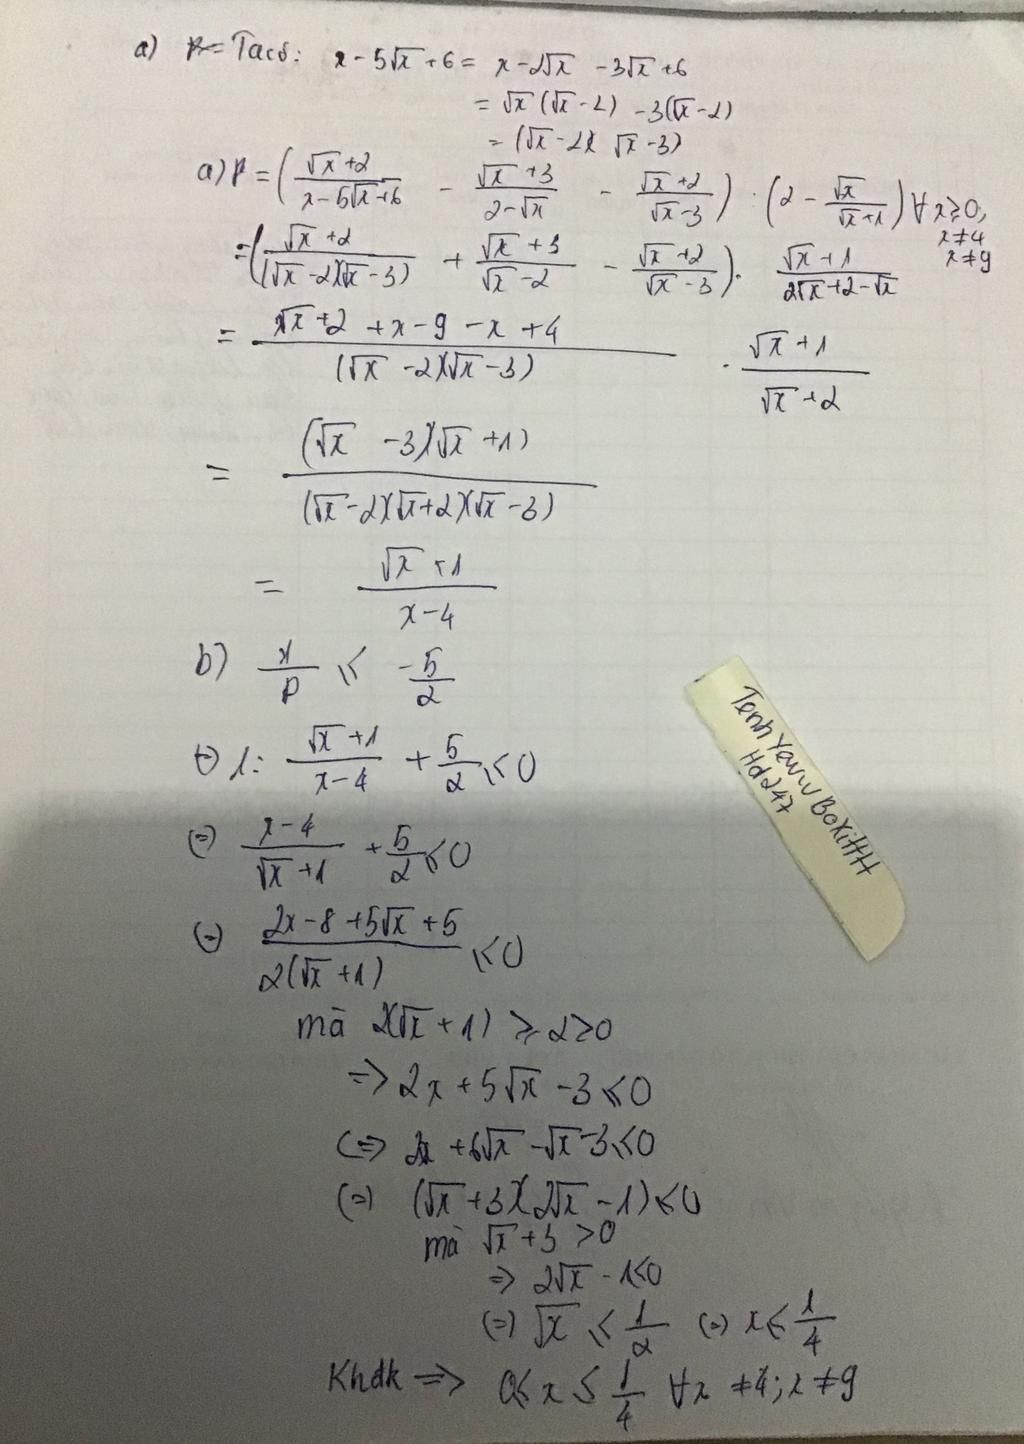 a) P= Ta có: x - 5√x + 6 = x - 2√x - 3√x + 6
= √x (√x - 2) - 3(√x - 2)
= (√x - 2)( √x - 3)
a) P = ( (√x + 2)/(x - 5√x + 6) - (√x + 3)/(2 - √x) - (√x + 2)/(√x - 3) ) : (2 - √x/(√x + 1)) ∀ x ≥ 0,
x ≠ 4
x ≠ 9
= ( (√x + 2)/((√x - 2)(√x - 3)) + (√x + 3)/(√x - 2) - (√x + 2)/(√x - 3) ) . (√x + 1)/(2√x + 2 - √x)
= (√x + 2 + x - 9 - x + 4)/((√x - 2)(√x - 3)) . (√x + 1)/(√x + 2)
= ((√x - 3)(√x + 1))/((√x - 2)(√x + 2)(√x - 3))
= (√x + 1)/(x - 4)
b) 1/P ≤ -5/2
⇔ 1 : (√x + 1)/(x - 4) + 5/2 ≤ 0
⇔ (x - 4)/(√x + 1) + 5/2 ≤ 0
⇔ (2x - 8 + 5√x + 5)/(2(√x + 1)) ≤ 0
mà 2(√x + 1) ≥ 2 > 0
⇒ 2x + 5√x - 3 ≤ 0
⇔ 2x + 6√x - √x - 3 ≤ 0
⇔ (√x + 3)(2√x - 1) ≤ 0
mà √x + 3 > 0
⇒ 2√x - 1 ≤ 0
⇔ √x ≤ 1/2 ⇔ x ≤ 1/4
Khđk ⇒ 0 ≤ x ≤ 1/4 ∀x ≠ 4; x ≠ 9
Hd247